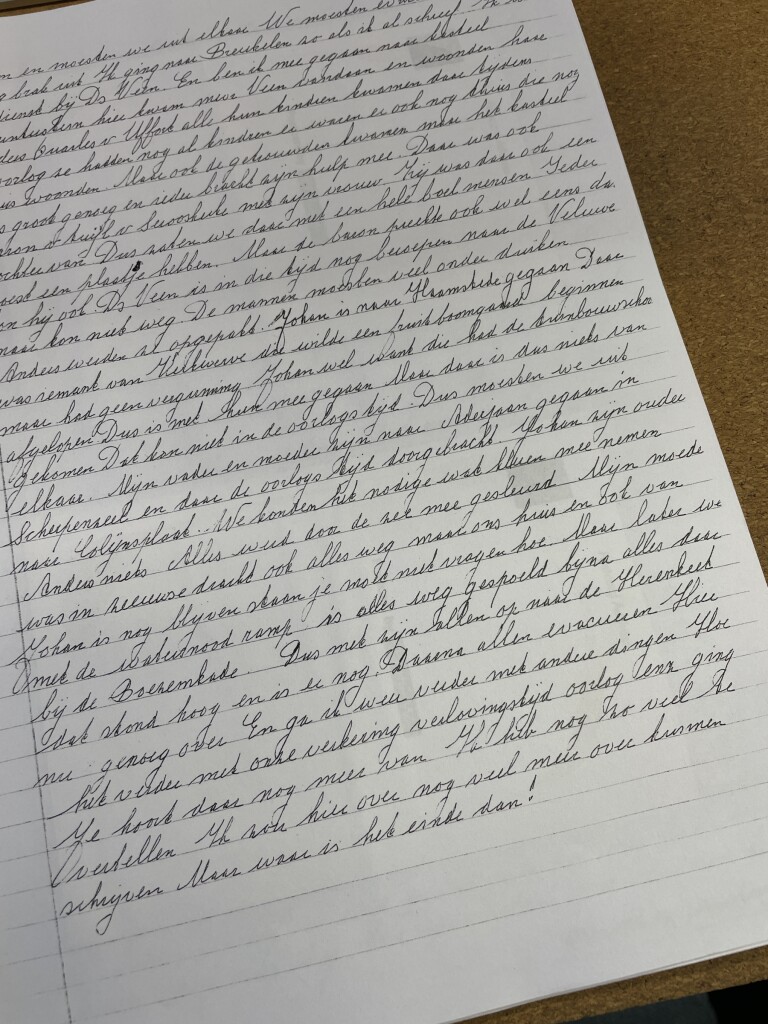 n en moesten we uit elkaar We moesten
g brak uit. Ik ging naar Breukelen zo als ik al schreef. Ik
dienst bij Ds Veen. En ben ik mee gegaan naar kasteel
hier kwam mevr Veen vandaan en woonden haar
ders Quarles v Ufford alle hun kindren kwamen daar tydens
oorlog ze hadden nog al kindren er waren er ook nog thuis die nog
uis woonden. Maar ook de getrouwden kwamen maar het kasteel
s groot genoeg en ieder bracht zijn hulp mee. Daar was ook
aron v Tuijll v Serooskerke met zijn vrouw Zij was daar ook een
ochter van. Dus zaten we daar met een hele boel mensen Ieder
oest een plaatsje hebben. Maar de baron preekte ook wel eens da
on hij ook. Ds Veen is in die tijd nog beroepen naar de Veluwe
maar kon niet weg. De mannen moesten veel onder duiken
Anders werden ze opgepakt. Johan is naar Haamstede gegaan Daar
was iemant van Kerkwerve die wilde een fruitboomgaard beginnen
maar had geen vergunning Johan wel want die had de tuinbouwschool
afgelopen Dus is met hun mee gegaan Maar daar is dus niets van
gekomen Dat kan niet in de oorlogstijd. Dus moesten we uit
elkaar. Mijn vader en moeder zijn naar Aderjaan gegaan in
Scherpenzeel en daar de oorlogs tijd doorgebracht Johan zijn ouder
naar Colijnsplaat.. We konden het nodige wat kleren mee nemen
Anders niets Alles werd door de zee mee gesleurd Mijn moede
was in zeeuwse dracht ook alles weg maar ons huis en ook van
Johan is nog blyven staan je moet niet vragen hoe. Maar later we
met de watersnood ramp is alles weg gespoeld byna alles daar
bij de Boezemkade. Dus met zijn allen op naar de Herenkeet
dat stond hoog en is er nog. Daarna allen evacueren Hier
nu genoeg over En ga ik weer verder met andere dingen Hoe
het verder met onze verkering verlovingstijd oorlog enz ging
Je hoort daar nog meer van Ik heb nog zo veel te
vertellen Ik zou hier over nog veel meer over kunnen
schrijven Maar waar is het einde dan!